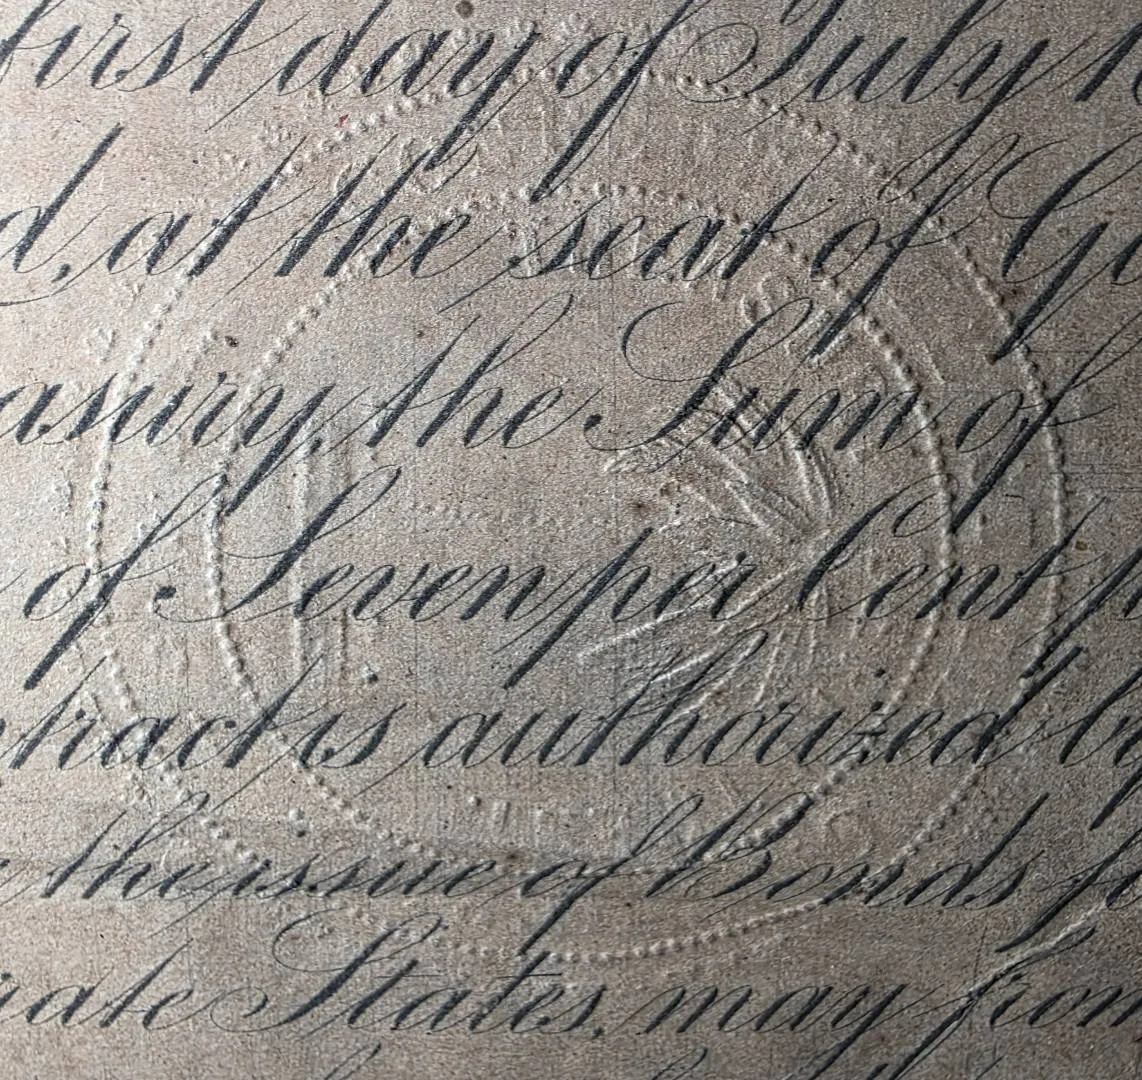 first day of July
d, at the seat of
asury, the Sum of
of Seven per Cent
tract is authorized
the issue of Bonds
rate States, may from